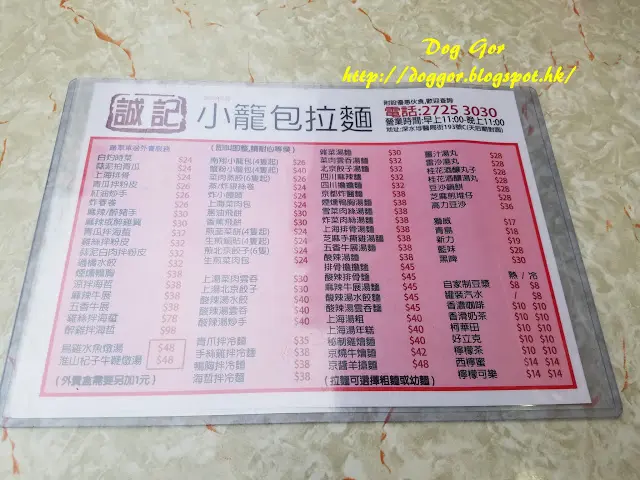 Dog Gor
http://doggor.blogspot.hk/
誠記
小籠包拉麵
附設優惠伙食,歡迎查詢
電話:2725 3030
營業時間:早上11:00-晚上11:00
(即叫即整,請耐心等候)
白灼時菜 $24
蒜泥拍青瓜 $24
上海拼椿 $24
青瓜拌粉皮 $26
紅油抄手 $26
炸春卷 $26
麻辣/醉豬手 $30
麻辣或醉雞翼 $30
青瓜拌海蜇 $32
雞絲拌粉皮 $32
蒜泥白肉拌粉皮 $32
過橋水餃 $32
煙燻鴨胸 $38
蔥拌海蜇 $38
麻辣牛展 $38
五香牛展 $38
麻辣拌海蜇 $38
醉雞拌海蜇 $98
烏雞水魚燉湯 $48
淮山杞子牛𦟌燉湯 $48
(外賣盒需要另加1元)
小籠包(4隻起) $26
菜肉蒸餃(6隻起) $26
蒸/炸銀絲卷 $24
上海菜肉包 $24
蔥油飛餅 $30
香蕉飛餅 $30
生煎鍋貼(4隻起) $24
煎北京餃子(6隻) $24
生煎菜肉包 $24
上湯菜肉雲吞 $30
上湯北京餃子 $30
酸辣湯水餃 $40
酸辣湯雲吞 $40
酸辣湯抄手 $40
青瓜拌冷麵 $35
手絲雞拌冷麵 $38
鴨胸拌冷麵 $38
海蜇拌冷麵 $38
雜菜湯麵 $30
菜肉雲吞湯麵 $32
北京餃子湯麵 $32
四川麻辣麵 $32
四川擔擔麵 $32
京都炸醬麵 $32
煙燻鴨胸湯麵 $38
雪菜肉絲湯麵 $38
炸菜肉絲湯麵 $38
上海排骨湯麵 $38
芝麻手撕雞湯麵 $38
五香牛展湯麵 $38
酸辣湯麵 $38
排骨擔擔麵 $45
酸辣排骨麵 $45
麻辣牛展湯麵 $45
酸辣湯水餃麵 $45
酸辣湯雲吞麵 $45
上海湯粗 $40
上海湯年糕 $40
秘制雞燴麵 $40
京燒牛燴麵 $42
京醬羊燴麵 $48
(拉麵可選擇粗麵或幼麵)
薑汁湯丸 $28
雷沙湯丸 $28
桂花酒釀丸子 $28
桂花酒釀湯丸 $28
豆沙鍋餅 $28
芝麻煎堆仔 $28
高力豆沙 $36
獅威 $17
青島 $18
新力 $19
藍妹 $28
黑啤 $30
熱 / 冷
自家制豆漿 $8 $8
罐裝汽水 / $8
香濃咖啡 $10 $10
香滑奶茶 $10 $10
柯華田 $10 $10
好立克 $10 $10
檸檬茶 $10 $10
西檸蜜 $14 $14
檸檬可樂 $14 $14